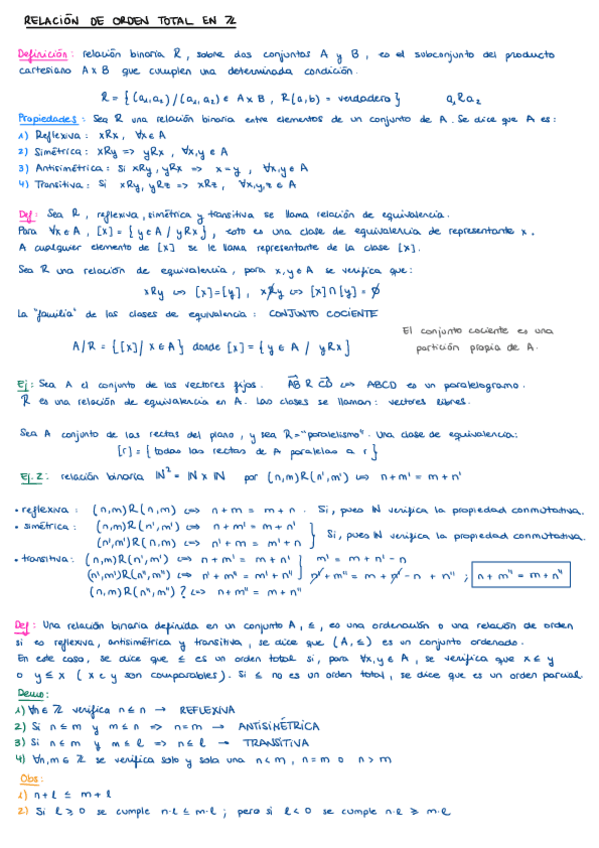 RELACIÓN DE ORDEN TOTAL EN ℤ
Definición: relación binaria R, sobre dos conjuntos A y B, es el subconjunto del producto
cartesiano A x B que cumplen una determinada condición.
R = { (a₁,a₂) / (a₁,a₂) ∈ A x B, R(a,b) = verdadero } a₁Ra₂
Propiedades: Sea R una relación binaria entre elementos de un conjunto de A. Se dice que A es:
1) Reflexiva: xRx, ∀x∈A
2) Simétrica: xRy => yRx, ∀x,y ∈ A
3) Antisimétrica: Si xRy, yRx => x=y, ∀x,y ∈ A
4) Transitiva: Si xRy, yRz => xRz, ∀x,y,z ∈ A
Def: Sea R, reflexiva, simétrica y transitiva se llama relación de equivalencia.
Para ∀x∈A, [x] = { y∈A / yRx }, esto es una clase de equivalencia de representante x.
A cualquier elemento de [x] se le llama representante de la clase [x].
Sea R una relación de equivalencia, para x,y∈A se verifica que:
xRy <=> [x]=[y], xR̸y <=> [x]∩[y] = ∅
La "familia" de las clases de equivalencia: CONJUNTO COCIENTE
A/R = {[x] / x∈A} donde [x] = { y∈A / yRx }
El conjunto cociente es una
partición propia de A.
Ej: Sea A el conjunto de los vectores fijos. AB R CD <=> ABCD es un paralelogramo.
R es una relación de equivalencia en A. Las clases se llaman: vectores libres.
Sea A conjunto de las rectas del plano, y sea R="paralelismo". Una clase de equivalencia:
[r] = { todas las rectas de A paralelas a r }
Ej. 2: relación binaria ℕ² = ℕ x ℕ por (n,m)R(n',m') <=> n+m' = m+n'
• reflexiva: (n,m)R(n,m) <=> n+m = m+n. Si, pues ℕ verifica la propiedad conmutativa.
• simétrica: (n,m)R(n',m') <=> n+m' = m+n'
(n',m')R(n,m) <=> n'+m = m'+n } Si, pues ℕ verifica la propiedad conmutativa.
• transitiva: (n,m)R(n',m') <=> n+m' = m+n' } m' = m+n'-n
(n',m')R(n'',m'') <=> n'+m'' = m'+n'' } n'+m'' = m+n'-n+n''; n+m'' = m+n''
(n,m)R(n'',m'')? <=> n+m'' = m+n''
Def: Una relación binaria definida en un conjunto A, ≤, es una ordenación o una relación de orden
si es reflexiva, antisimétrica y transitiva, se dice que (A,≤) es un conjunto ordenado.
En este caso, se dice que ≤ es un orden total si, para ∀x,y∈A, se verifica que x≤y
o y≤x (x e y son comparables). Si ≤ no es un orden total, se dice que es un orden parcial
Demo:
1) ∀n∈ℤ verifica n≤n → REFLEXIVA
2) Si n≤m y m≤n => n=m → ANTISIMÉTRICA
3) Si n≤m y m≤l => n≤l → TRANSITIVA
4) ∀n,m∈ℤ se verifica solo y sola una n<m, n=m o n>m
Obs:
1) n+l ≤ m+l
2) Si l≥0 se cumple n·l ≤ m·l; pero si l<0 se cumple n·l ≥ m·l